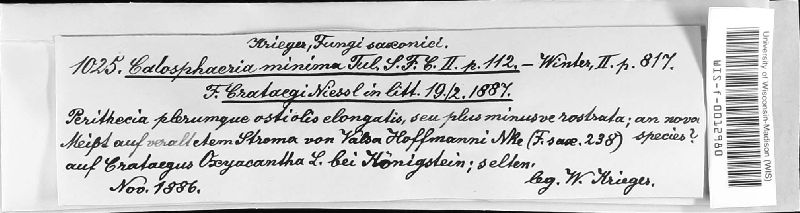 Krieger, Fungi saxonici.
1025. Calosphaeria minima Tul. S. F. C. II. p. 112. – Winter, II. p. 817.
F. Crataegi Niessl in litt. 19/2. 1887.
Perithecia plerumque ostiolis elongatis, seu plus minusve rostrata; an nova species?
Meißt auf veraltetem Stroma von Valsa Hoffmanni Nke (F. sax. 238)
auf Crataegus Oxyacantha L. bei Königstein; selten.
Nov. 1886.
leg. W. Krieger.
University of Wisconsin-Madison (WIS)
WIS-f-0012980